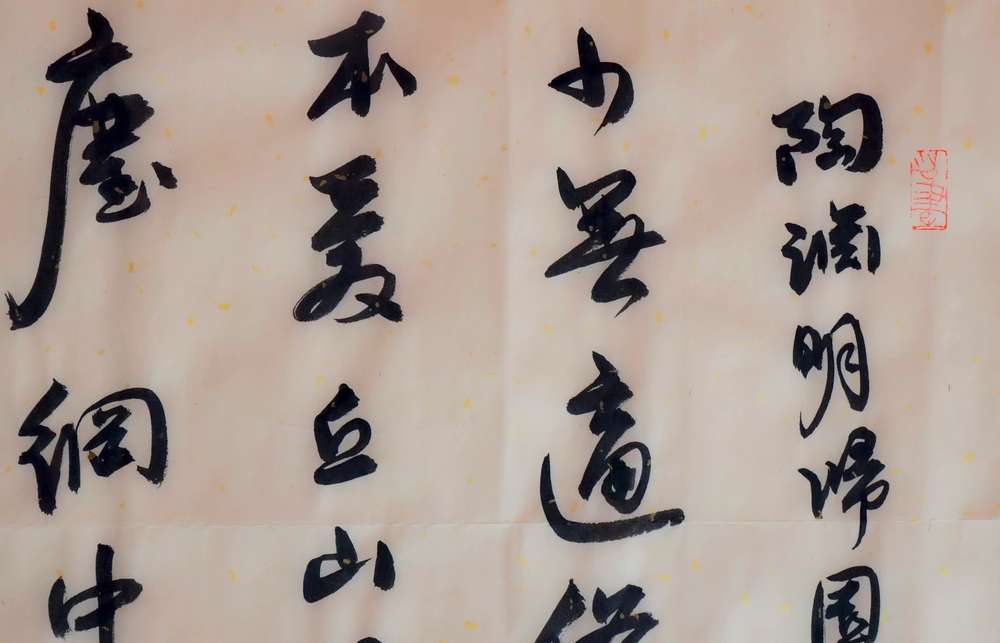 陶淵明歸園
少無適俗
本愛丘山
塵網中